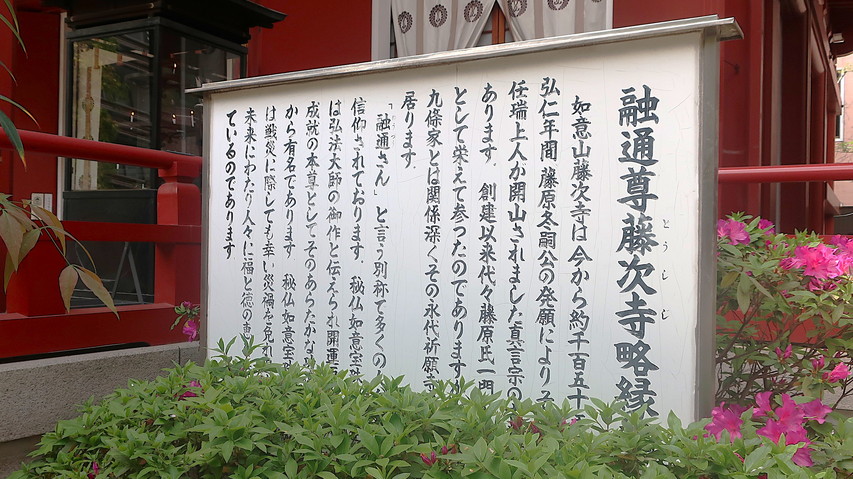 融通尊藤次寺略縁
とうじじ
如意山藤次寺は今から約千百五十
弘仁年間 藤原冬嗣公の発願によりそ
任瑞上人が開山されました真言宗の
あります．創建以来代々藤原氏一門
として栄えて参ったのであります
九條家とは関係深くその永代祈願寺
居ります．
「融通さん」と言う別称で多くの
信仰されております．秘仏如意宝珠
は弘法大師の御作と伝えられ開運
成就の本尊としてそのあらたかな
から有名であります 秘仏如意宝
は戦災に際しても幸い災禍を免れ
未来にわたり人々に福と徳の恵
ているのであります